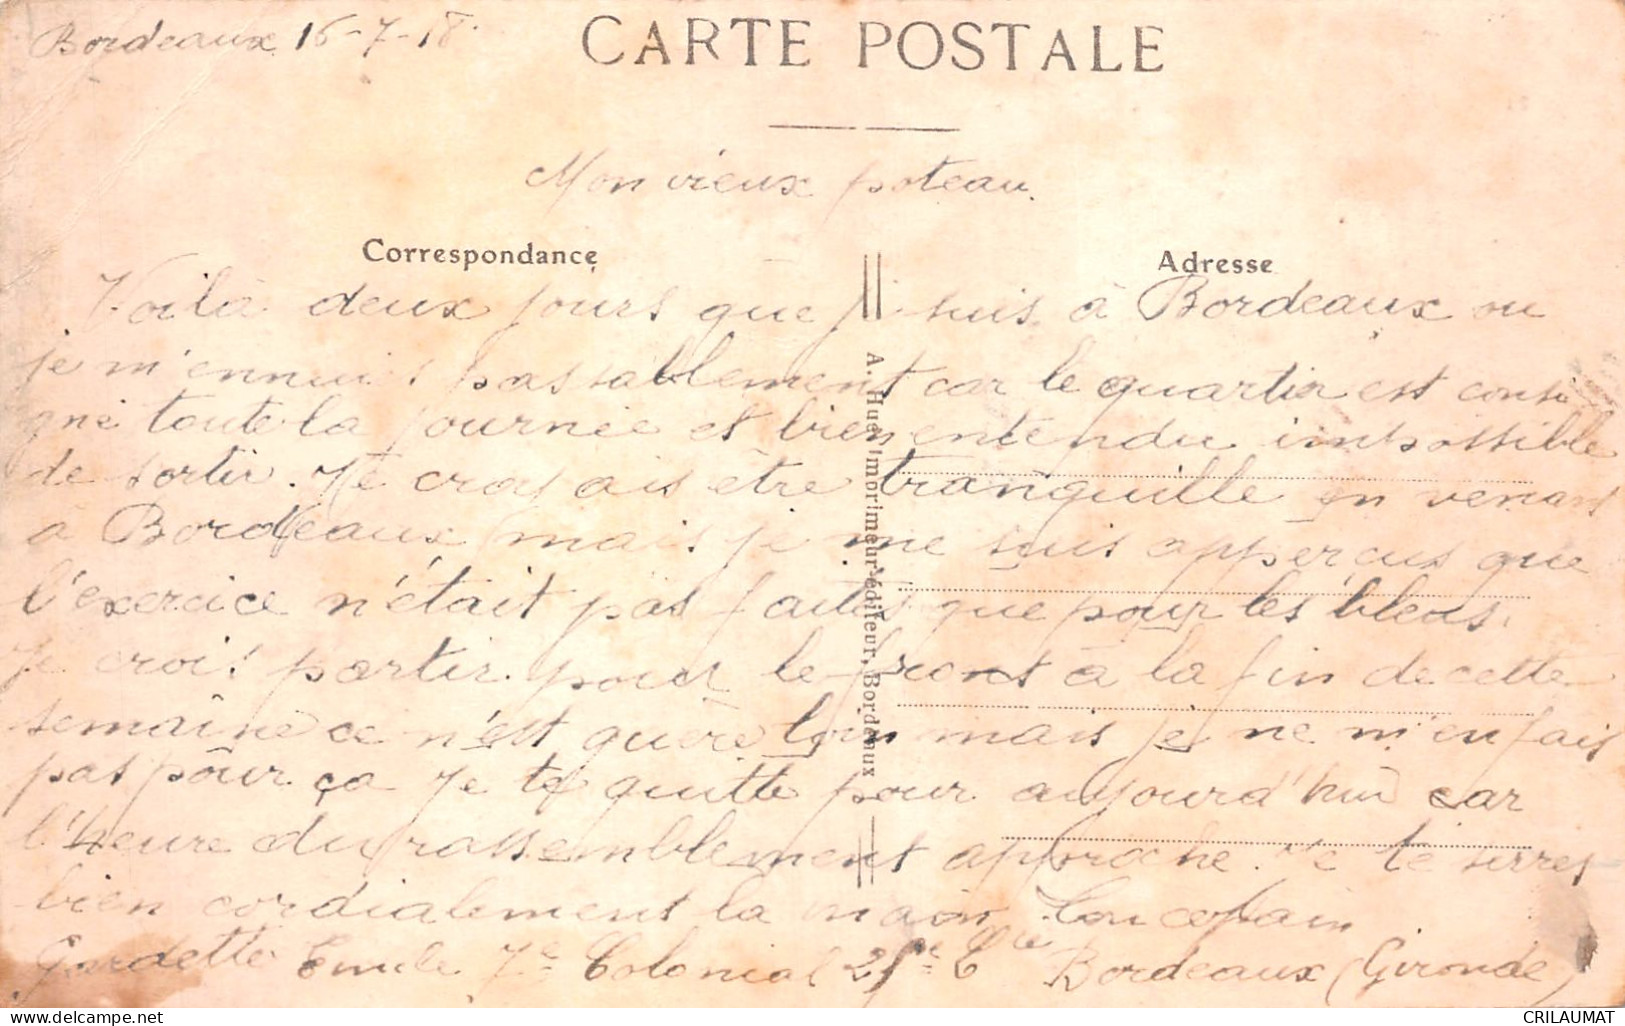 Bordeaux 16-7-18.
CARTE POSTALE
Mon vieux poteau.
Correspondance
Adresse
Voilà deux jours que je suis à Bordeaux ou
je m'ennuis passablement car le quartier est consi
gné toute la journée et bien entendu impossible
de sortir. Je croyais être tranquille en venant
à Bordeaux mais je me suis appercus que
l'exercice n'était pas faites que pour les bleus.
Je crois partir pour le front à la fin de cette
semaine ce n'est guère loin mais je ne m'en fais
pas pour ça Je te quitte pour aujourd'hui car
l'heure du rassemblement approche. Je te serres
bien cordialement la main Ton copain
Gardette Emile 7e Colonial 25e Cie Bordeaux (Gironde)
A. Hue, imprimeur-éditeur, Bordeaux
https://www.delcampe.net
CRILAUMAT